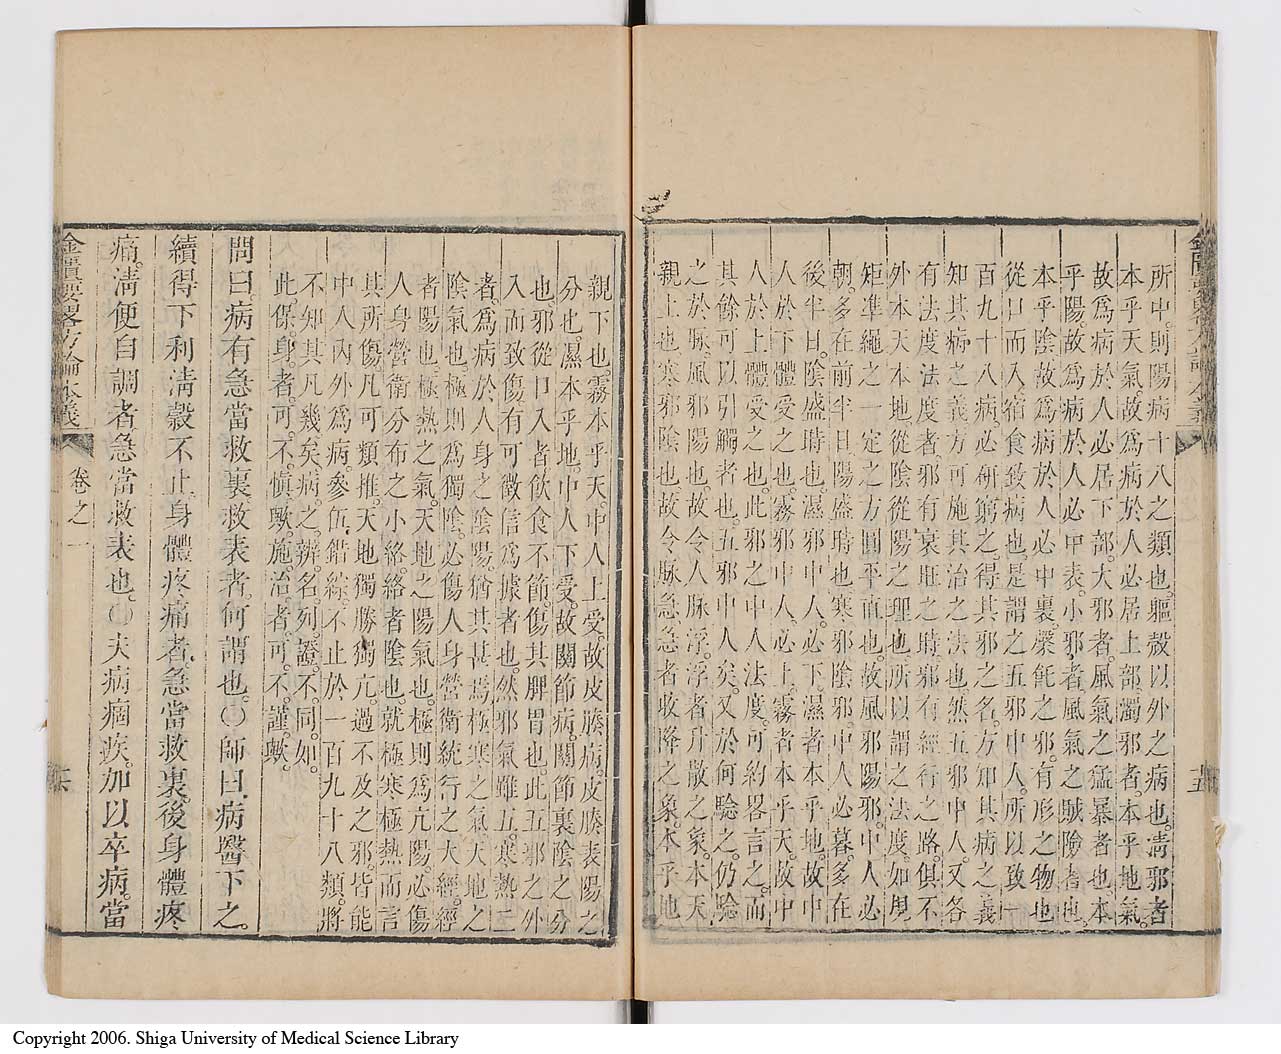 所中。則陽病十八之類也。軀殼以外之病也。淸邪者
本乎天氣。故爲病於人必居上部。濁邪者。本乎地氣。
故爲病於人必居下部。大邪者。風氣之猛暴者也。本
乎陽。故爲病於人必中表。小邪者。風氣之賊險者也。
本乎陰。故爲病於人必中裏。䅽飥之邪。有形之物也
從口而入。宿食致病也。是謂之五邪中人。所以致一
百九十八病。必硏窮之。得其邪之名。方知其病之義
知其病之義。方可施其治之法也。然五邪中人。又各
有法度。法度者。邪有衰旺之時。邪有經行之路。俱不
外本天本地從陰從陽之理也。所以謂之法度。如規
矩準繩之一定之方圓平直也。故風邪陽邪。中人必
朝。多在前半日陽盛時也。寒邪陰邪。中人必暮。多在
後半日。陰盛時也。濕邪中人。必下。濕者本乎地。故中
人於下。體受之也。霧邪中人。必上。霧者本乎天。故中
人於上。體受之也。此邪之中人法度。可約畧言之。而
其餘可以引觸者也。五邪中人矣。又於何驗之。仍驗
之於脉。風邪陽也。故令人脉浮。浮者升散之象。本天
親上也。寒邪陰也。故令脉急。急者收降之象。本乎地
親下也。霧本乎天。中人上受。故皮腠病。皮腠表陽之
分也。濕本乎地。中人下受。故關節病。關節裏陰之分
也。邪從口入者。飮食不節。傷其脾胃也。此五邪之外
入而致傷。有可徵信爲據者也。然邪氣雖五。寒熱二
者。爲病於人身之陰陽。猶其甚焉。極寒之氣。天地之
陰氣也。極則爲獨陰。必傷人身營衛統行之大經。經
者陽也。極熱之氣。天地之陽氣也。極則爲亢陽。必傷
人身營衛分布之小絡。絡者陰也。就極寒極熱而言
其所傷。凡可類推。天地獨勝獨亢。過不及之邪。皆能
中人內外爲病。參伍錯綜。不止於一百九十八類。將
不知其凡幾矣。病之辨名。列證不同。如
此。保身者。可不愼歟。施治者。可不謹歟。
問曰。病有急當救裏救表者。何謂也。〇師曰。病醫下之。
續得下利淸穀不止。身體疼痛者。急當救裏。後身體疼
痛。淸便自調者。急當救表也。〇夫病痼疾。加以卒病。當
金匱要畧方論本義
卷之一